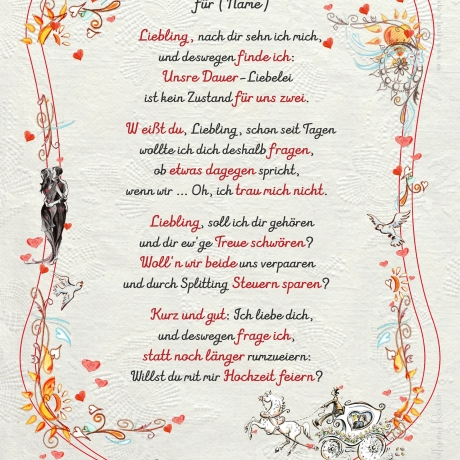 für ( Name )
Liebling, nach dir sehn ich mich,
und deswegen finde ich:
Unsre Dauer-Liebelei
ist kein Zustand für uns zwei.
Weißt du, Liebling, schon seit Tagen
wollte ich dich deshalb fragen,
ob etwas dagegen spricht,
wenn wir ... Oh, ich trau mich nicht.
Liebling, soll ich dir gehören
und dir ew'ge Treue schwören?
Woll'n wir beide uns verpaaren
und durch Splitting Steuern sparen?
Kurz und gut: Ich liebe dich,
und deswegen frage ich,
statt noch länger rumzueiern:
Willst du mit mir Hochzeit feiern?